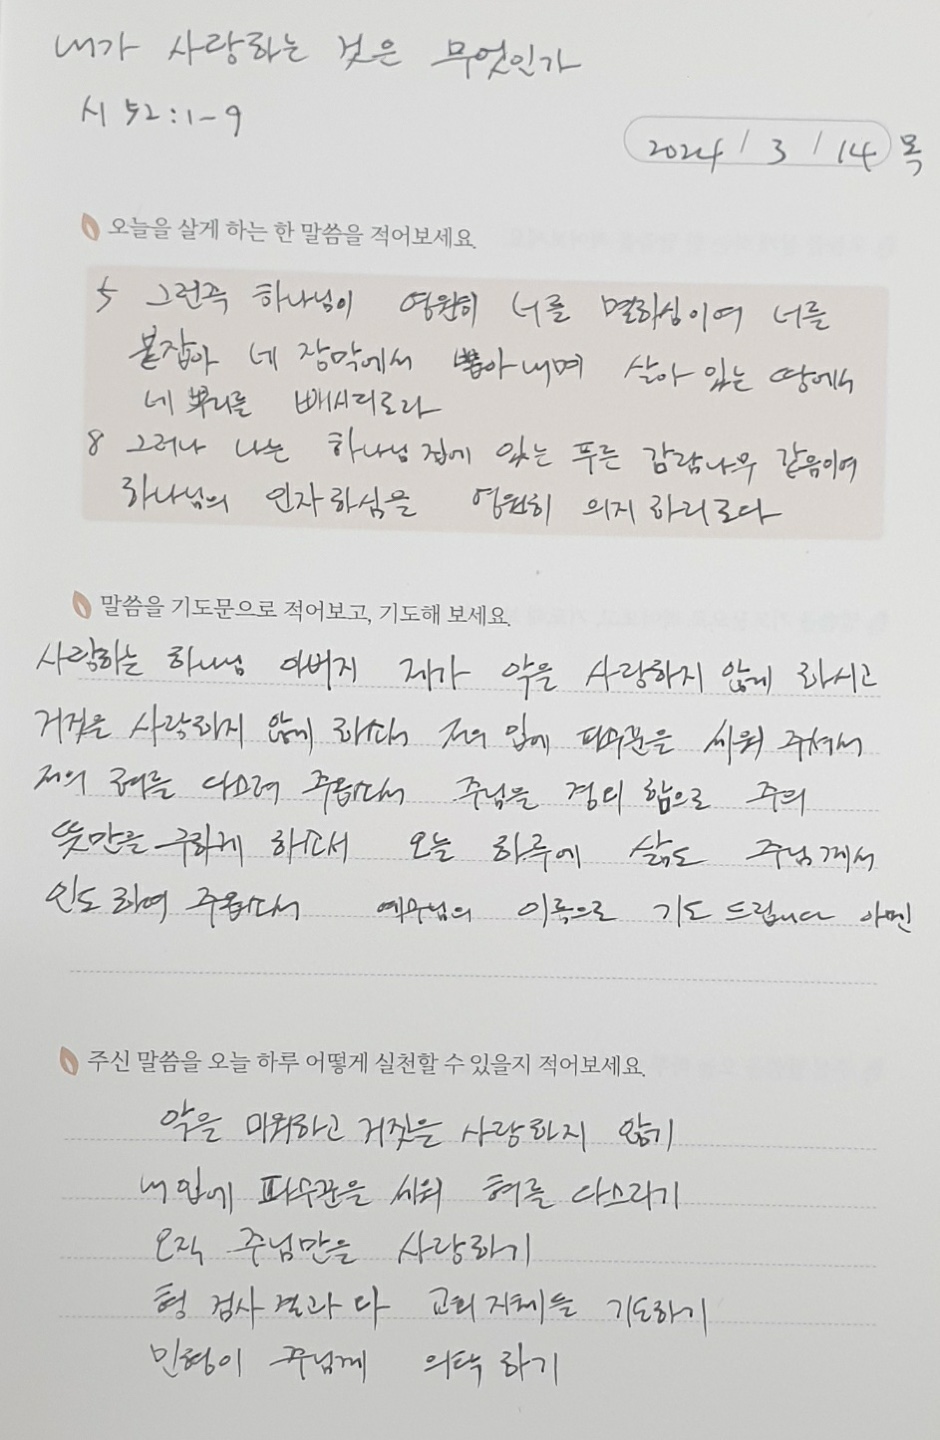 내가 사랑하는 것은 무엇인가
시 52:1-9
2024 / 3 / 14 목
오늘을 살게 하는 한 말씀을 적어보세요.
5 그런즉 하나님이 영원히 너를 멸하심이여 너를
붙잡아 네 장막에서 뽑아내며 살아 있는 땅에서
네 뿌리를 빼시리로다
8 그러나 나는 하나님 집에 있는 푸른 감람나무 같음이여
하나님의 인자하심을 영원히 의지하리로다
말씀을 기도문으로 적어보고, 기도해 보세요.
사랑하는 하나님 아버지 제가 악을 사랑하지 않게 하시고
거짓을 사랑하지 않게 하소서 저의 입에 파수꾼을 세워 주셔서
저의 혀를 다스려 주옵소서 주님을 경외함으로 주의
뜻만을 구하게 하소서 오늘 하루에 삶도 주님께서
인도하여 주옵소서 예수님의 이름으로 기도드립니다 아멘
주신 말씀을 오늘 하루 어떻게 실천할 수 있을지 적어보세요.
악을 미워하고 거짓을 사랑하지 않기
내 입에 파수꾼을 세워 혀를 다스리기
오직 주님만을 사랑하기
형 검사 결과 다 교회 지체들 기도하기
민형이 주님께 의탁하기